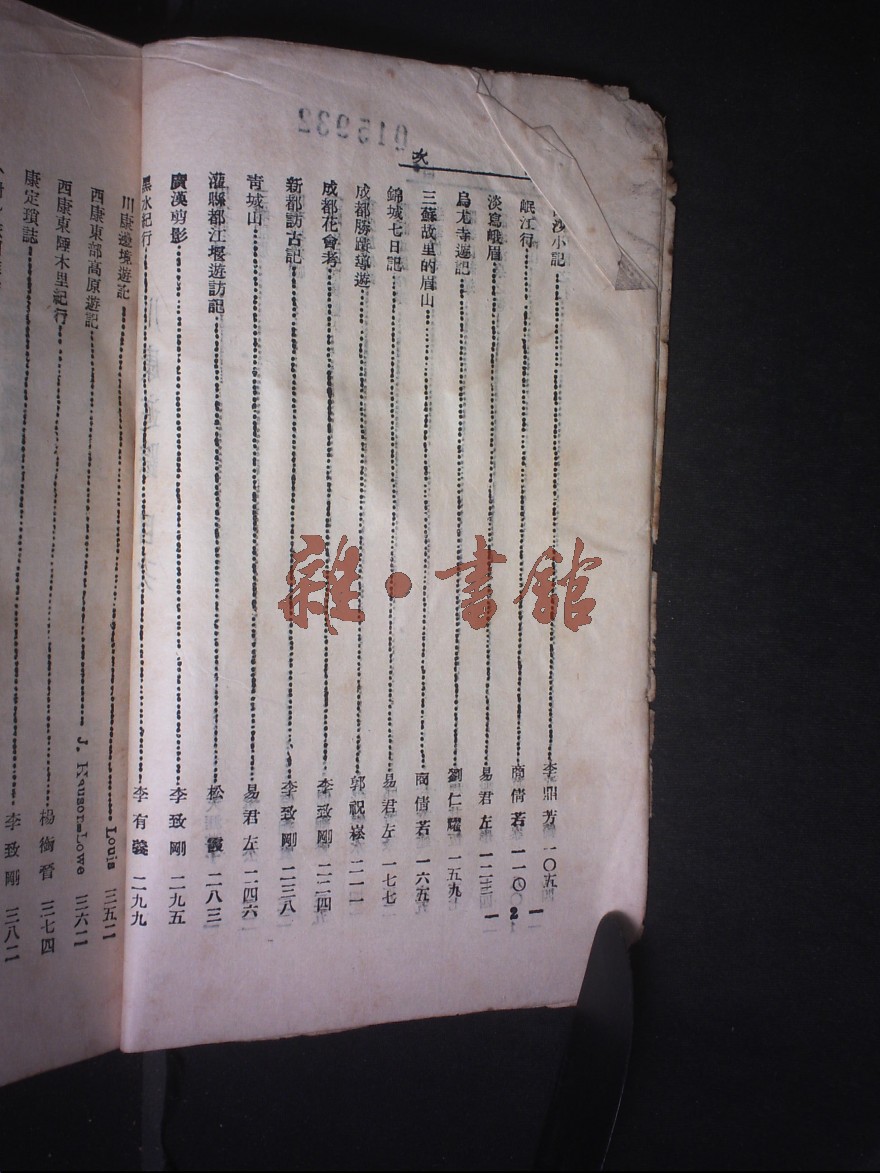 015932
沙小記 李鼎芳 一〇五
岷江行 商倩若 一一〇
淡寫峨眉 易君左 一二三
烏尤寺遊記 劉仁耀 一五九
三蘇故里的眉山 商倩若 一六五
錦城七日記 易君左 一七七
成都勝蹟導遊 郭祝崧 二一一
成都花會考 李致剛 二二四
新都訪古記 李致剛 二三八
青城山 易君左 二四六
灌縣都江堰遊訪記 松霞 二八三
廣漢剪影 李致剛 二九五
黑水紀行 李有義 二九九
川康邊境遊記 Louis 三五二
西康東部高原遊記 J. Lowe 三六二
西康東陲木里紀行 楊衡晉 三七四
康定瑣誌 李致剛 三八二
— 2 —
雜·書館